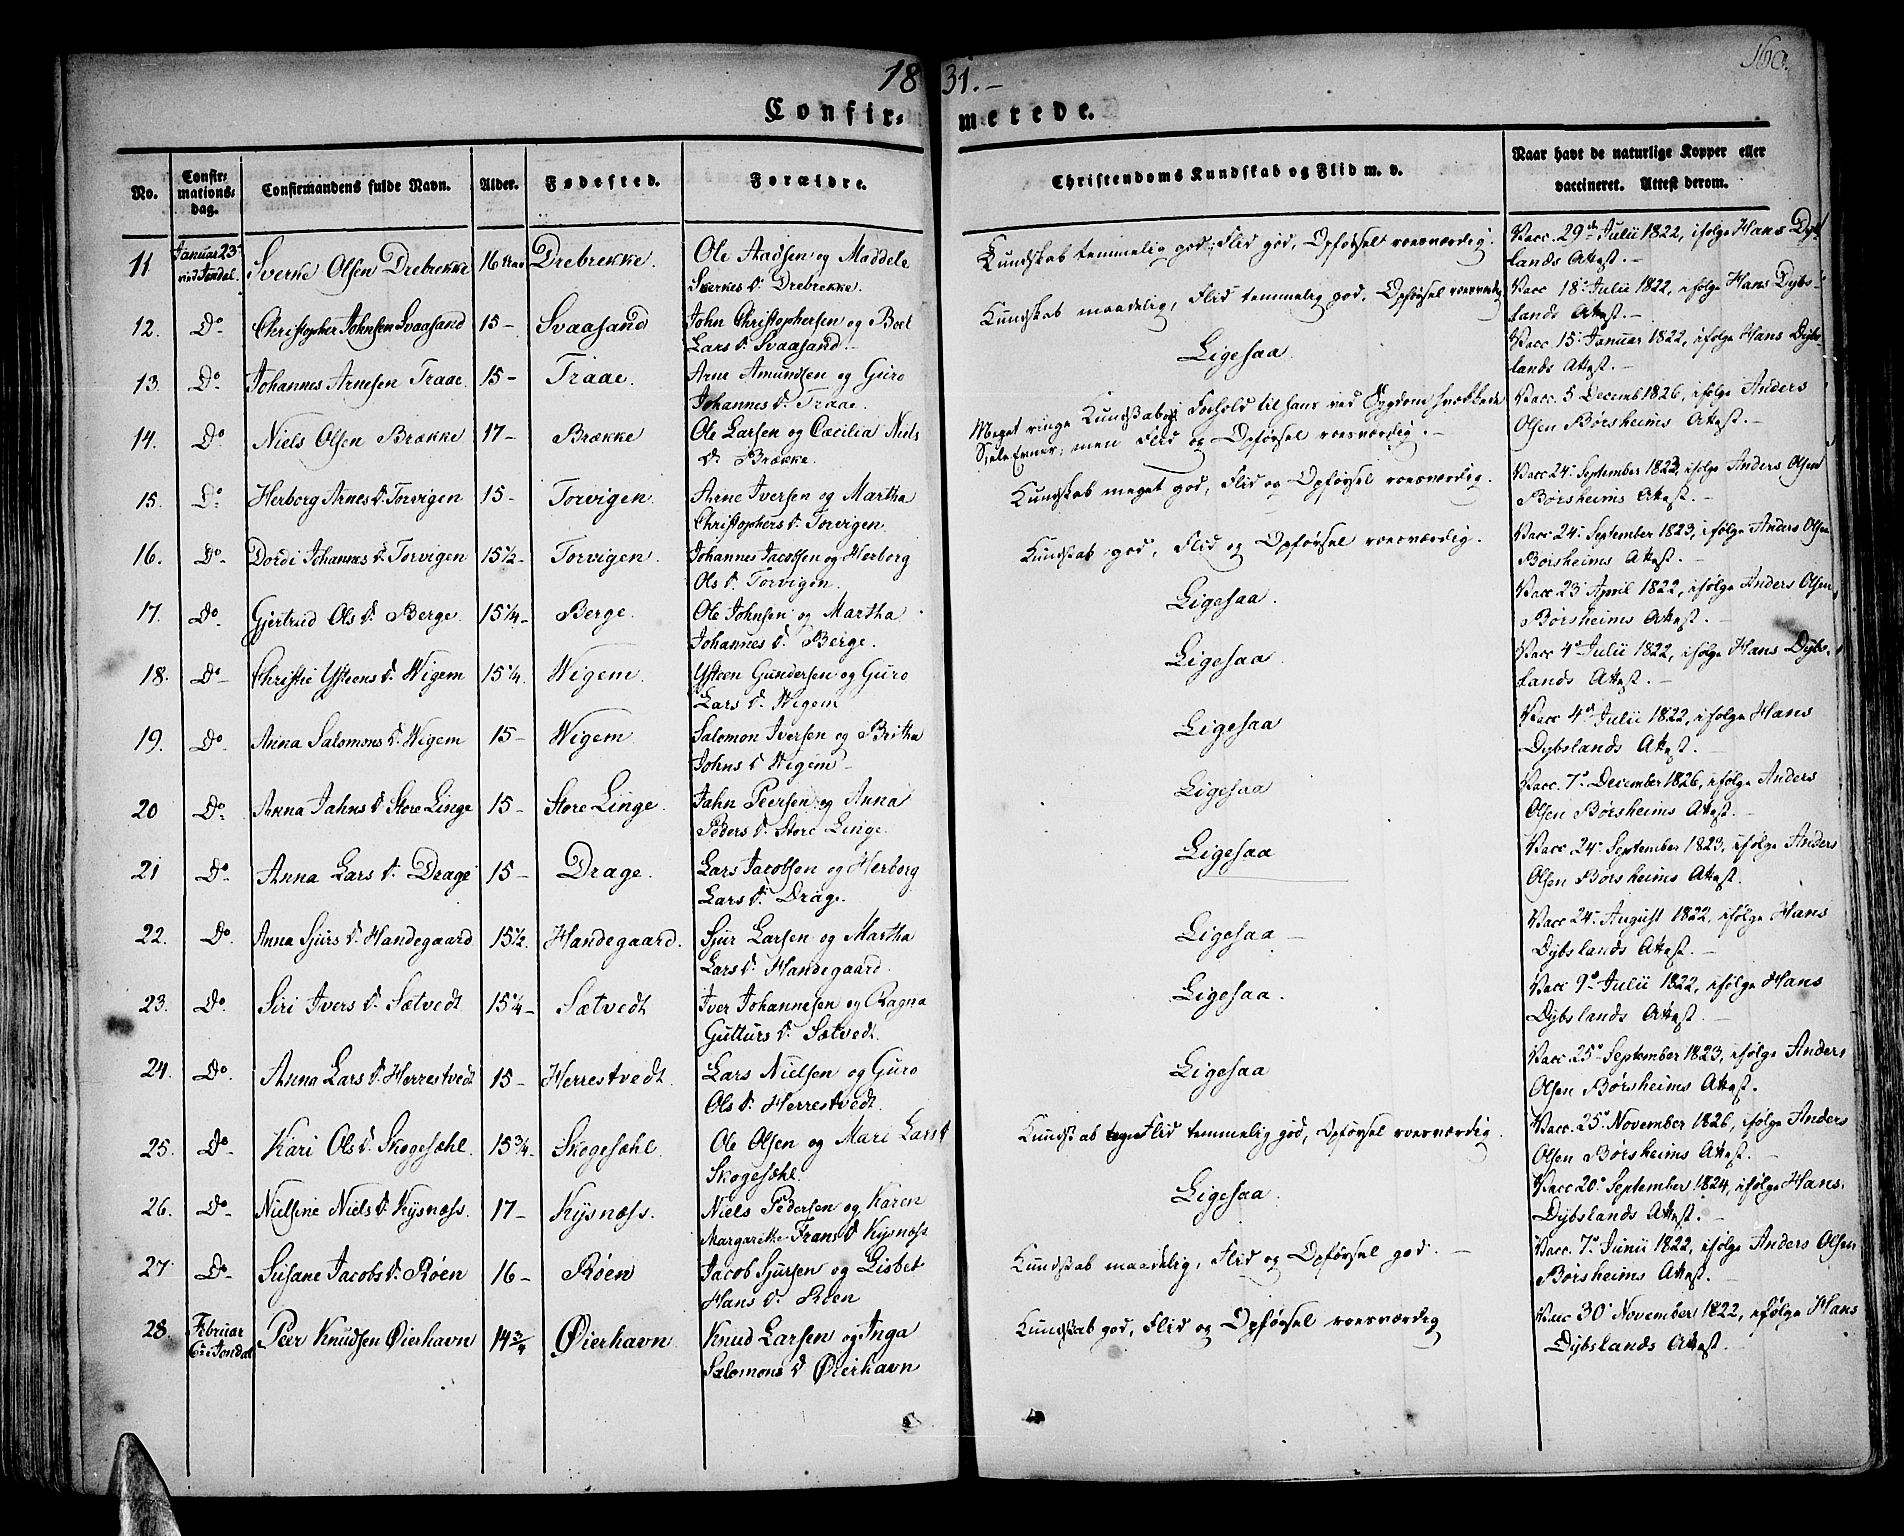 1831.-
160.
Confirmerede.
No.
Confirmationsdag.
Confirmandens fulde Navn.
Alder.
Fødested.
Forældre.
Christendoms Kundskab og Flid m. v.
Naar havt de naturlige Kopper eller
vaccineret. Attest derom.
11 Januar 23 Sverke Olsen Drebrekke 16 Drebrekke. Ole Aadsen og Maddele Kundskab temmelig god, Flid god, Opførsel roesværdig. Vacc. 29 Julii 1822, ifølge Hans Dybs
Sverkes D. Drebrekke. lands Attest.-
12. Do Christopher Johnsen Svaasand 15- Svaasand John Christophersen og Boel Kundskab maadelig, Flid temmelig god, Opførsel roesværdig Vacc 18 Julii 1822, ifølge Hans Dybs-
Lars D. Svaasand.- lands Attest.-
13. Do Johannes Arnesen Traae. 15- Traae. Arne Amundsen og Guro Ligesaa. Vacc. 15 Januar 1822, ifølge Hans Dybs-
Johannes D. Traae. lands Attest.
14. Do Niels Olsen Brække 17- Brække Ole Larsen og Cæcilia Niels Meget ringe Kundskab i Forhold til hans ved Sygdom svækkede Vacc. 5 Decemb 1826, ifølge Anders
D. Brække. Siele Evner, men Flid og Opførsel roesværdig.- Olsen Børsheims Attest.-
15. Do Herborg Arnes D. Torvigen 15- Torvigen. Arne Iversen og Martha Kundskab meget god, Flid og Opførsel roesværdig. Vacc 24 September 1823, ifølge Anders Olsen
Christophers D. Torvigen Børsheims Attest.-
16. Do Dordi Johannes D. Torvigen 15 1/2- Torvigen. Johannes Jacobsen og Herborg Kundskab god, Flid og Opførsel roesværdig. Vacc 24 September 1823, ifølge Anders Olsen
Ols D. Torvigen. Børsheims Attest.-
17. Do Gjertrud Ols D. Berge. 15 1/4- Berge. Ole Johnsen og Martha Ligesaa. Vacc 23 April 1822, ifølge Anders Olsen
Johannes D. Berge. Børsheims Attest.-
18. Do Christie Ysteens D. Wigem 15 1/4. Wigem. Ysteen Gundersen og Guro Ligesaa. Vacc 4 Julii 1822, ifølge Hans Dybs-
Lars D. Wigem lands Attest.-
19. Do Anna Salomons D. Wigem 15- Wigem Salomon Iversen og Britha Ligesaa Vacc 4 Julii 1822, ifølge Hans
Johns D Wigem- Dybslands Attest.-
20 Do Anna Jahns D. Store Linge 15- Store Linge. Jahn Peersen og Anna Ligesaa Vacc. 7 December 1826, ifølge Anders
Peders D. Store Linge. Olsen Børsheims Attest.
21 Do Anna Lars D. Drage 15- Drage. Lars Jacobsen og Herborg Ligesaa Vacc. 24 September 1823, ifølge Anders
Lars D. Drage. Olsen Børsheims Attest.
22. Do Anna Sjurs D. Handegaard 15 1/2. Handegaard. Sjur Larsen og Martha Ligesaa- Vacc 24 August 1822, ifølge Hans
Lars D. Handegaard. Dybslands Attest.-
23. Do Siri Ivers D. Sætvedt 15 1/4- Sætvedt Iver Johannesen og Ragna Ligesaa. Vacc 9 Julii 1822, ifølge Hans
Gutturs D. Sætvedt. Dybslands Attest.-
24. Do. Anna Lars D. Herrestvedt 15- Herrestvedt. Lars Nielsen og Guro Ligesaa Vacc. 25 September 1823, ifølge Anders
Ols D. Herrestvedt. Olsen Børsheims Attest.
25. Do Kari Ols D. Skogesæhl. 15 3/4- Skogesæhl. Ole Olsen og Mari Lars D Kundskab og Flid temmelig god, Opførsel roesværdig. Vacc. 25 November 1826, ifølge Anders
Skogesæhl. Olsen Børsheims Attest.-
26. Do Nielsine Niels D. Kysnæss. 17- Kysnæss. Niels Pedersen og Karen Ligesaa. Vacc 20 September 1824, ifølge Hans
Margarethe Frans D Kysnæss Dybslands Attest.-
27 Do Susane Jacobs D. Røen 16- Røen Jacob Sjursen og Lisbet Kundskab maadelig, Flid og Opførsel god.- Vacc. 7 Junii 1822, ifølge Anders Olsen
Hans D. Røen Børsheims Attest.-
28. Februar Peer Knudsen Øierhavn 14 3/4 Øierhavn Knud Larsen og Inga Kundskab god, Flid og Opførsel roesværdig Vacc 30 November 1822, ifølge Hans
Salomons D Øierhavn Dybslands Attest.-